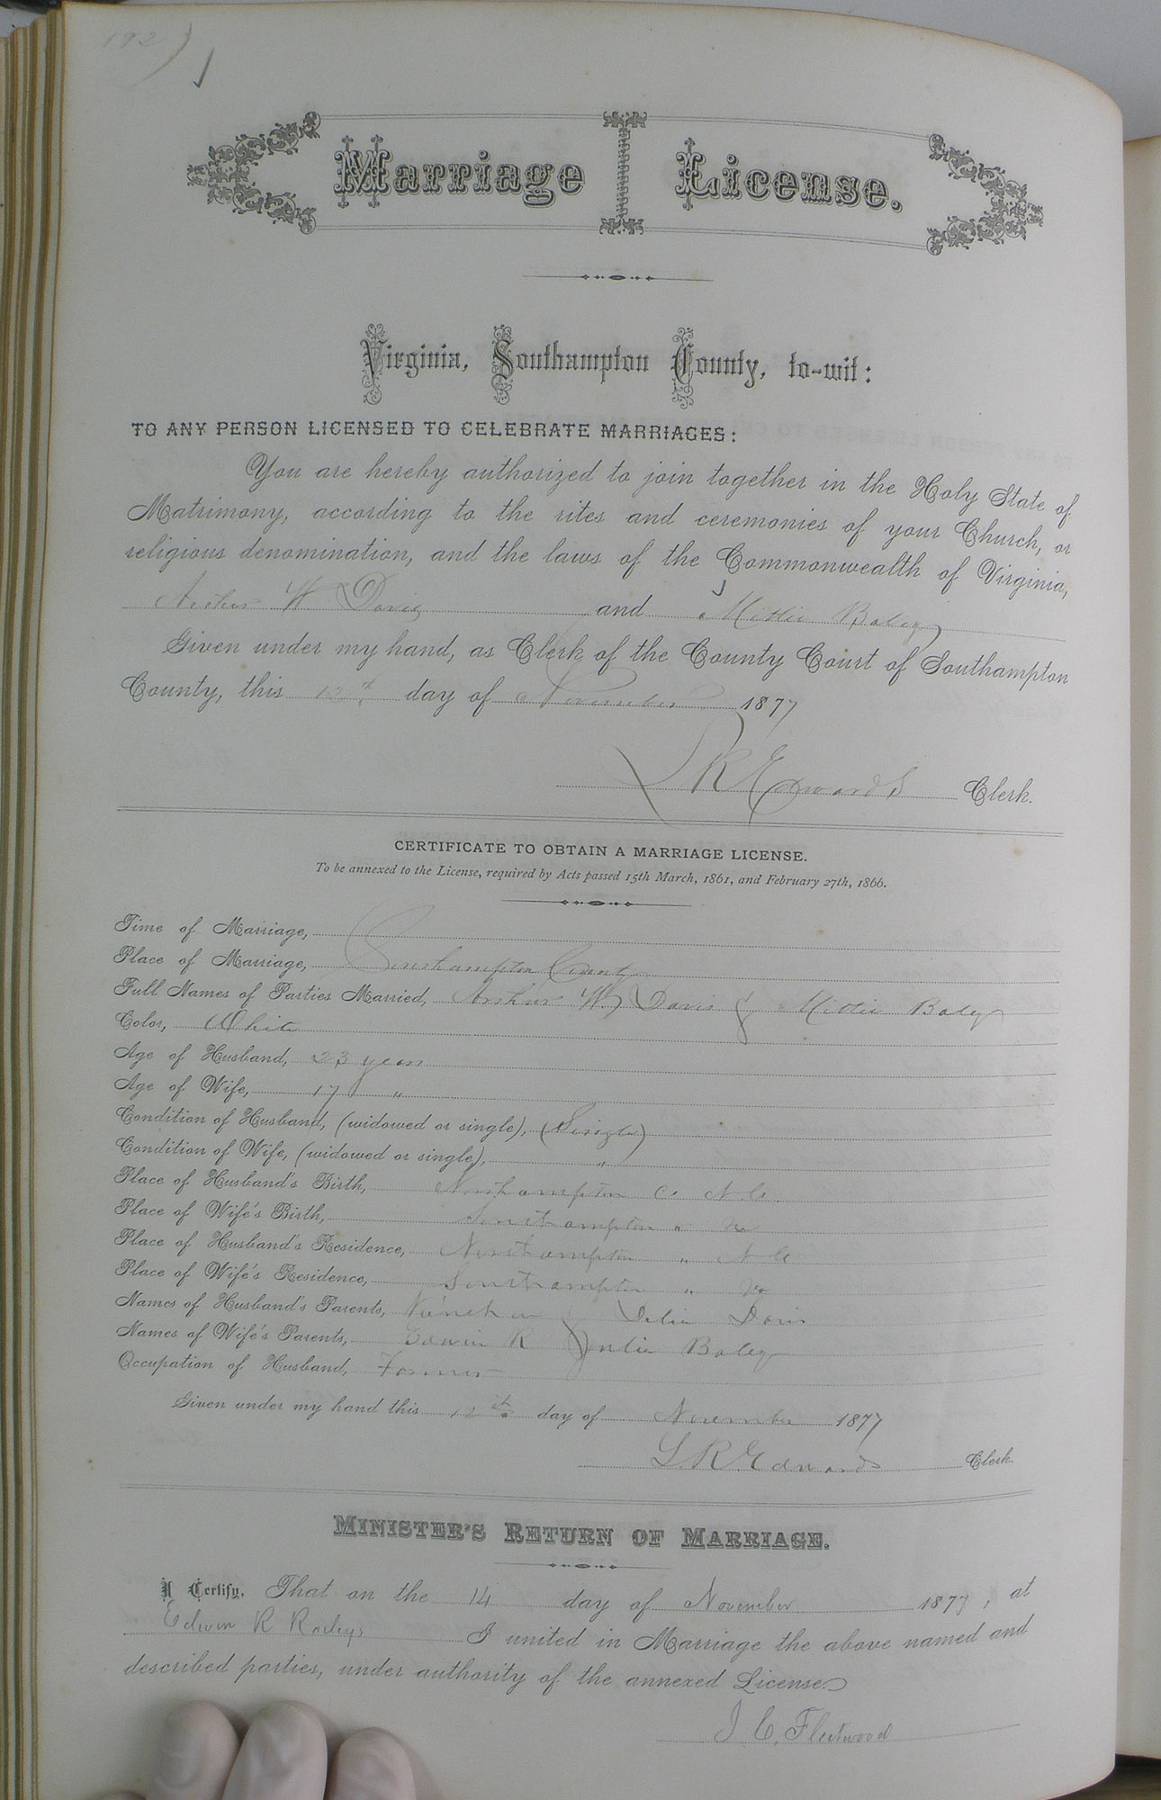 192
Marriage License.
Virginia, Southampton County, to-wit:
TO ANY PERSON LICENSED TO CELEBRATE MARRIAGES:
You are hereby authorized to join together in the Holy State of
Matrimony, according to the rites and ceremonies of your Church, or
religious denomination, and the laws of the Commonwealth of Virginia,
Arthur W Davis and Mittie Baley
Given under my hand, as Clerk of the County Court of Southampton
County, this 12th day of November 1877
L R Edwards Clerk.
CERTIFICATE TO OBTAIN A MARRIAGE LICENSE.
To be annexed to the License, required by Acts passed 15th March, 1861, and February 27th, 1866.
Time of Marriage,
Place of Marriage, Southampton County
Full Names of Parties Married, Arthur W. Davis & Mittie Baley
Color, White
Age of Husband, 23 years
Age of Wife, 17 "
Condition of Husband, (widowed or single), (Single)
Condition of Wife, (widowed or single), "
Place of Husband's Birth, Northampton Co N.C.
Place of Wife's Birth, Southampton " Va
Place of Husband's Residence, Northampton " N.C
Place of Wife's Residence, Southampton " Va
Names of Husband's Parents, Delia Davis
Names of Wife's Parents, Edwin R Julia Baley
Occupation of Husband, Farmer
Given under my hand this 12th day of November 1877
L. R. Edwards Clerk.
MINISTER'S RETURN OF MARRIAGE.
I Certify, That on the 14 day of November 1877, at
Edwin R I united in Marriage the above named and
described parties, under authority of the annexed License
J. C. Fleetwood